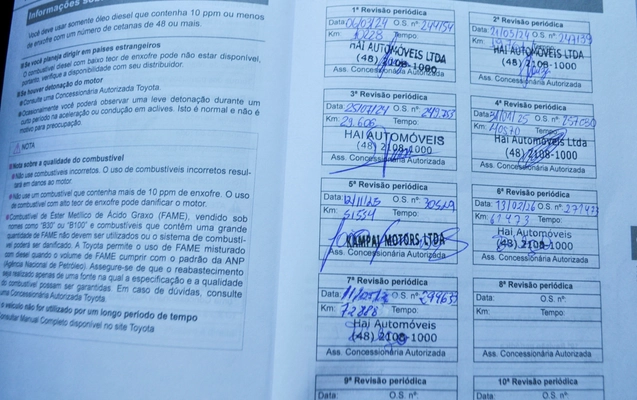 Informações
Você deve usar somente óleo diesel que contenha 10 ppm ou menos
de enxofre com um número de cetanas de 48 ou mais.
Se você planeja dirigir em países estrangeiros
O combustível diesel com baixo teor de enxofre pode não estar disponível,
portanto, verifique a disponibilidade com seu distribuidor.
Se houver detonação do motor
Consulte uma Concessionária Autorizada Toyota.
Ocasionalmente você poderá observar uma leve detonação durante um
curto período na aceleração ou condução em aclives. Isto é normal e não é
motivo para preocupação.
NOTA
Nota sobre a qualidade do combustível
Não use combustíveis incorretos. O uso de combustíveis incorretos resul-
tará em danos ao motor.
Não use um combustível que contenha mais de 10 ppm de enxofre. O uso
de combustível com alto teor de enxofre pode danificar o motor.
Combustível de Éster Metílico de Ácido Graxo (FAME), vendido sob
nomes como "B30" ou "B100" e combustíveis que contêm uma grande
quantidade de FAME não devem ser utilizados ou o sistema de combustí-
vel poderá ser danificado. A Toyota permite o uso de FAME misturado
com diesel quando o volume de FAME cumprir com o padrão da ANP
(Agência Nacional de Petróleo). Assegure-se de que o reabastecimento
seja realizado apenas de uma fonte na qual a especificação e a qualidade
do combustível possam ser garantidas. Em caso de dúvidas, consulte
uma Concessionária Autorizada Toyota.
o veículo não for utilizado por um longo período de tempo
Consultar Manual Completo disponível no site Toyota
1ª Revisão periódica
Data: O.S. nº:
Km: Tempo:
HAI AUTOMÓVEIS LTDA
(48) 2108-1000
Ass. Concessionária Autorizada
2ª Revisão periódica
Data: 21/05/24 O.S. nº:
Km: Tempo:
HAI AUTOMÓVEIS LTDA
(48) 2108-1000
Ass. Concessionária Autorizada
3ª Revisão periódica
Data: O.S. nº:
Km: 29.606 Tempo:
HAI AUTOMÓVEIS
(48) 2108-1000
Ass. Concessionária Autorizada
4ª Revisão periódica
Data: O.S. nº: 257080
Km: 40570 Tempo:
Hai Automóveis Ltda
(48) 2108-1000
Ass. Concessionária Autorizada
5ª Revisão periódica
Data: O.S. nº:
Km: 51534 Tempo:
KAMPAI MOTORS LTDA
Ass. Concessionária Autorizada
6ª Revisão periódica
Data: 13/02/26 O.S. nº:
Km: Tempo:
Hai Automóveis
(48) 2108-1000
Ass. Concessionária Autorizada
7ª Revisão periódica
Data: O.S. nº:
Km: 72888 Tempo:
Hai Automóveis
(48) 2108-1000
Ass. Concessionária Autorizada
8ª Revisão periódica
Data: O.S. nº:
Km: Tempo:
Ass. Concessionária Autorizada
9ª Revisão periódica
Data: O.S. nº:
10ª Revisão periódica
Data: O.S. nº: